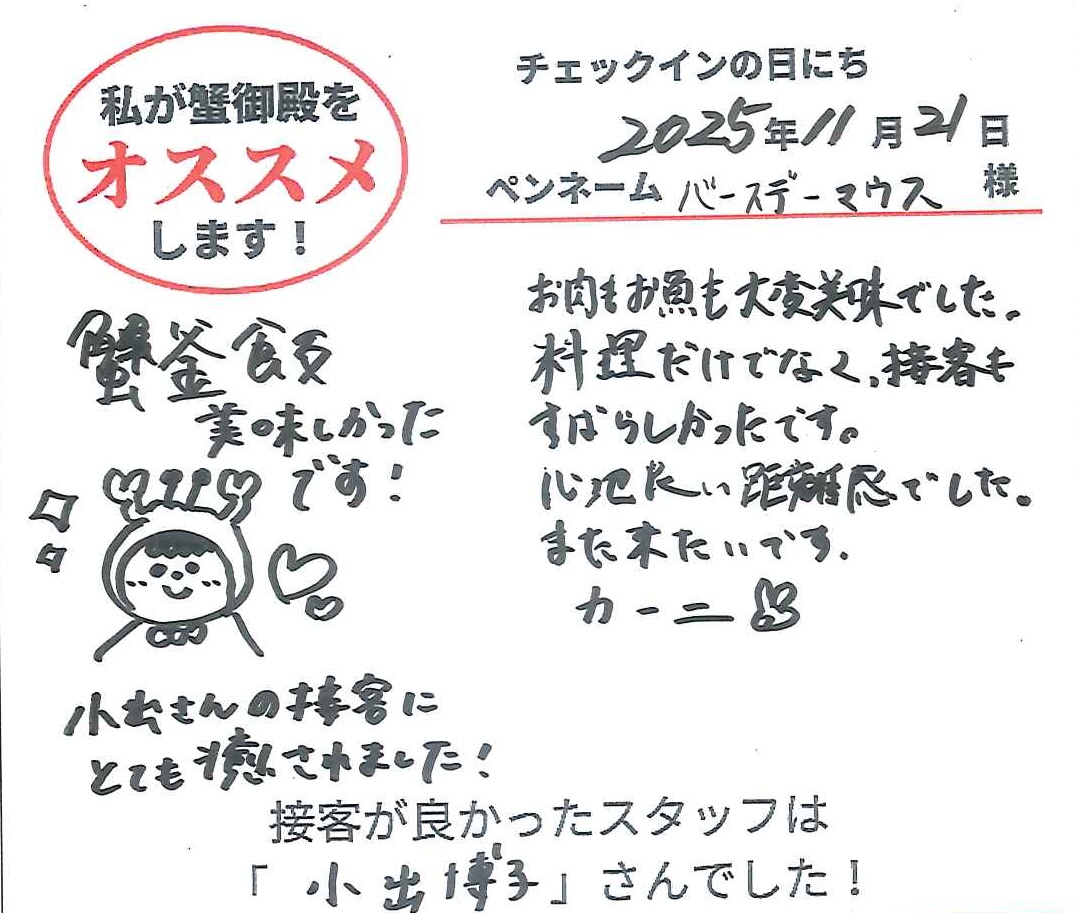 私が蟹御殿を
オススメ
します！
チェックインの日にち
2025年11月21日
ペンネーム バースデーマウス 様
蟹釜飯
美味しかった
です！
小出さんの接客に
とても癒されました！
お肉もお魚も大変美味でした。
料理だけでなく、接客も
すばらしかったです。
心地良い距離感でした。
また来たいです.
カーニ
接客が良かったスタッフは
「小出博子」さんでした！